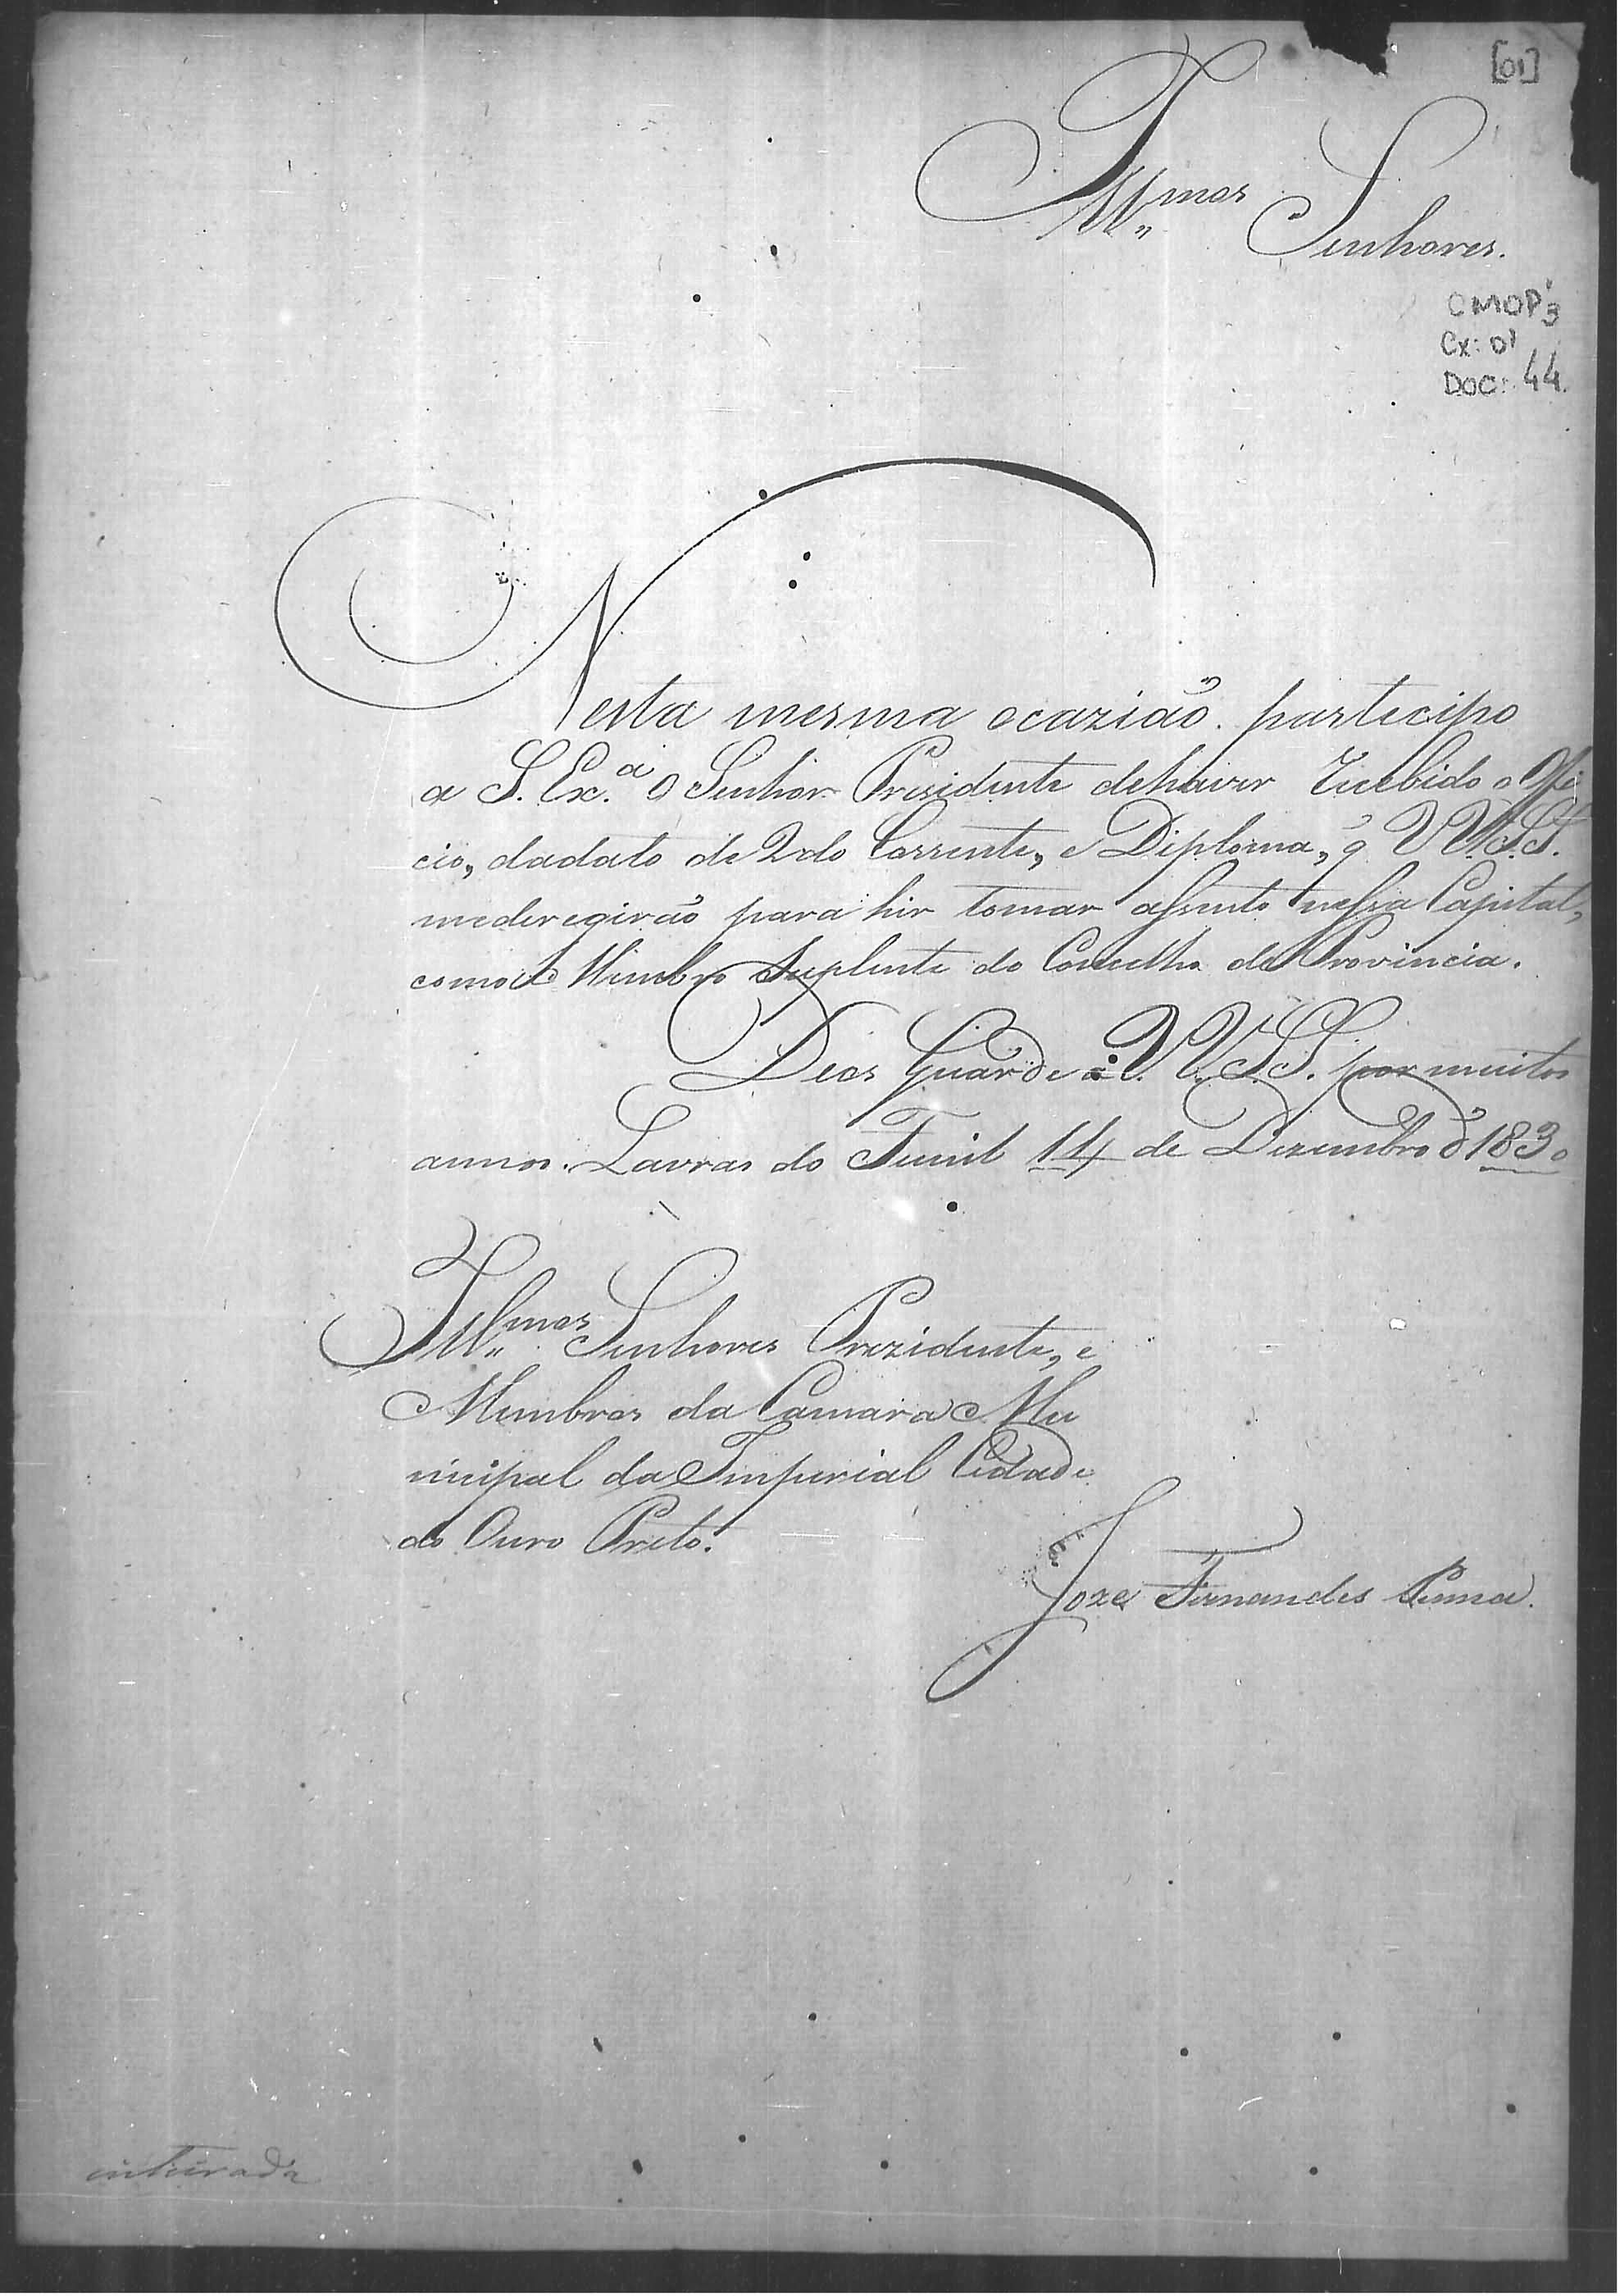 [01]
Ill.mos Senhores.
CMOP 3
Cx: 01
DOC: 44.
Nesta mesma ocazião partecipo
a S. Ex.a o Senhor Prezidente dehaver recebido o Ofi
cio, dadato de 2 do Corrente, e Diploma, q̃ V V. S.S.
mederegirão para hir tomar assento nessa Capital,
como Membro Suplente do Conselho da Provincia.
Deos Guarde a V. V. S.S. por muitos
annos. Lavras do Funil 14 de Dezembro d 1830
Ill.mos Senhores Prezidente, e
Membros da Camara Mu
nicipal da Imperial Cidade
do Ouro Preto.
Joze Fernandes Penna.
inteirada